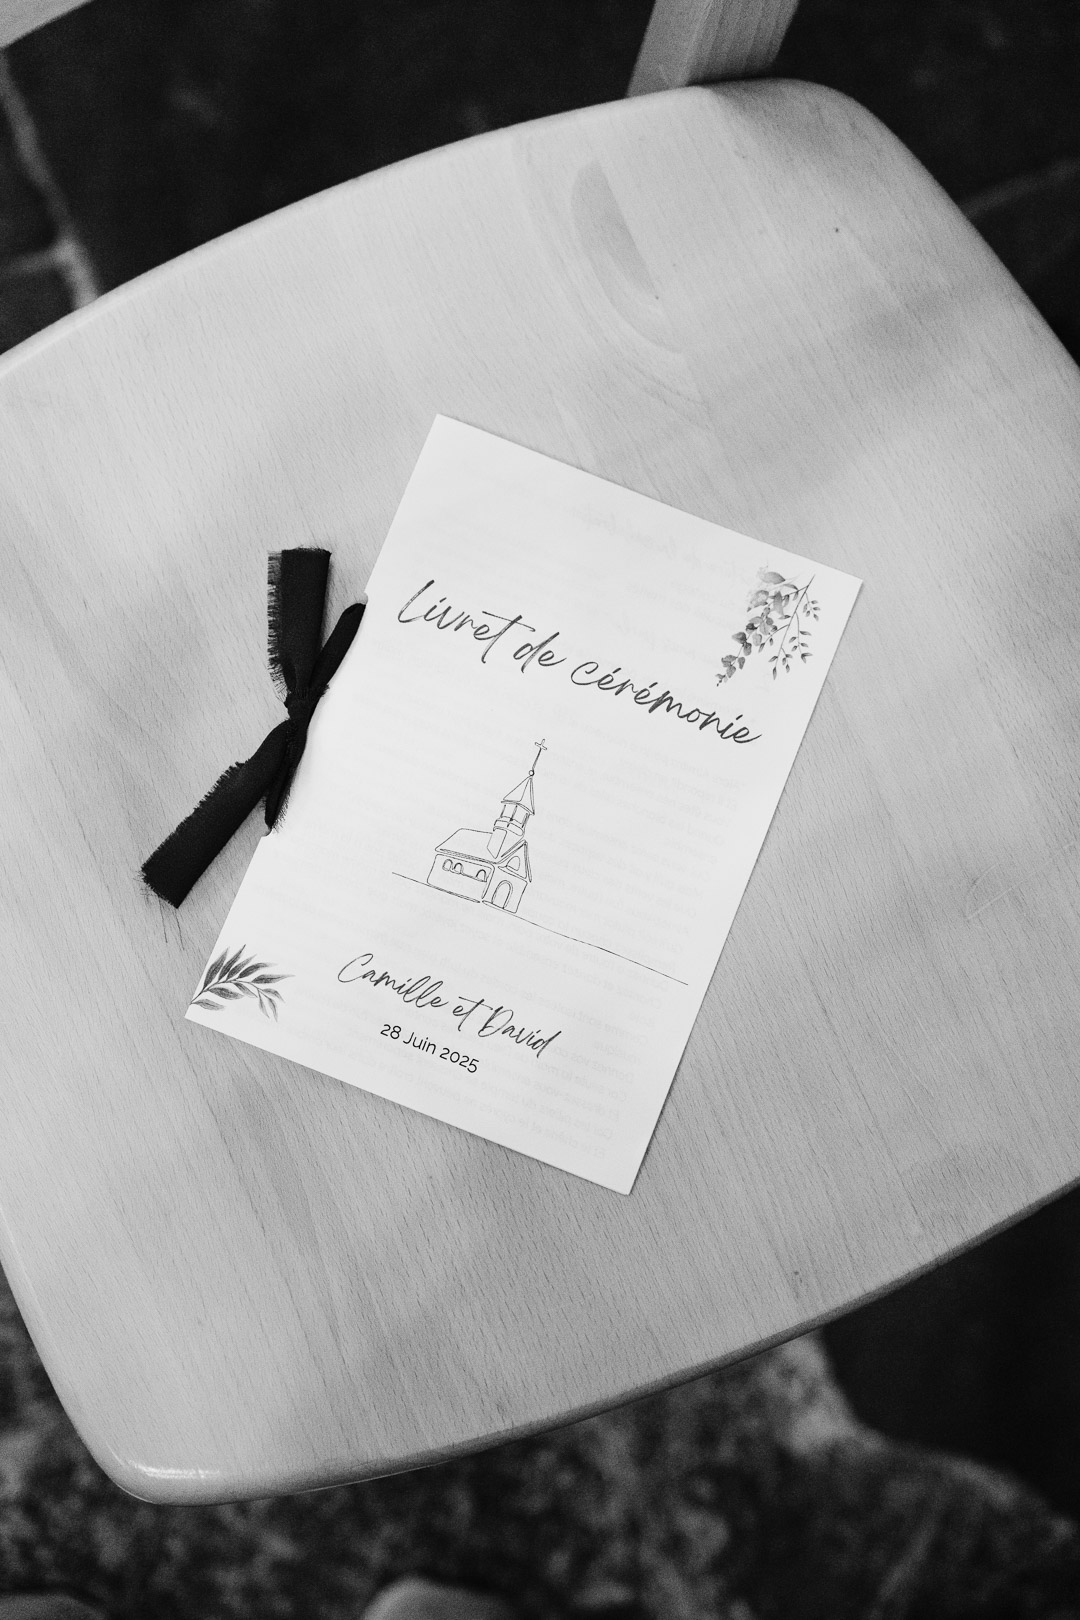 Livret de cérémonie
Camille et David
28 Juin 2025